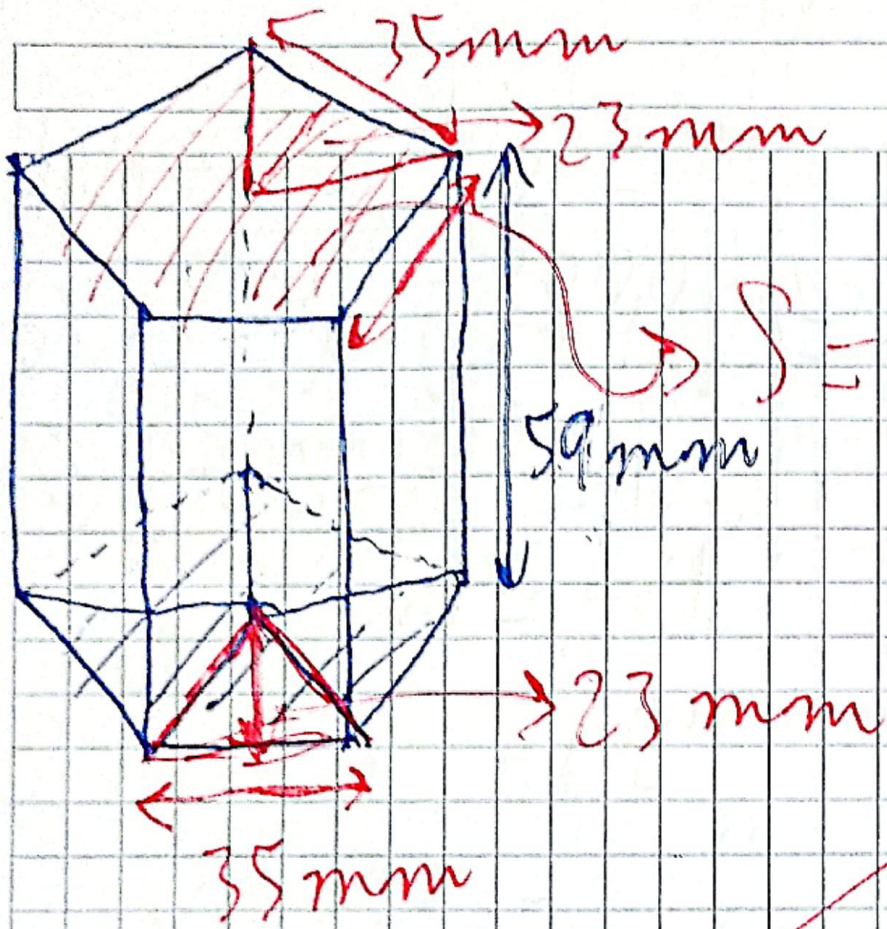 35mm
23mm
S=
59mm
23 mm
35mm